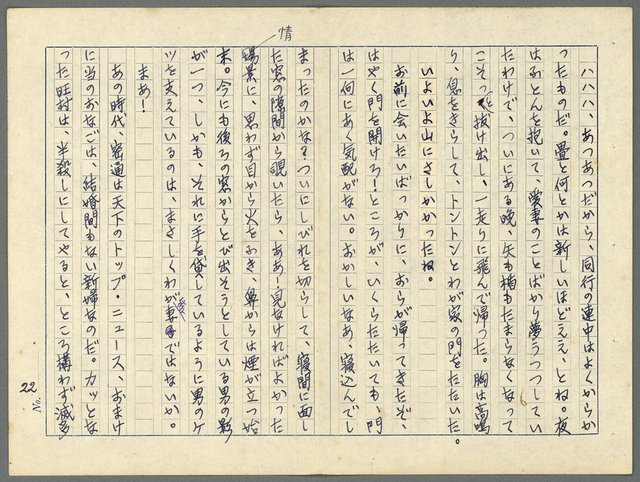 ハハハ、あつあつだから、同行の連中はよくからか
ったものだ。畳と何とかは新しいほどええ、とね。夜
はふとんを抱いて、愛妻のことばかり夢うつつしてい
たわけで、ついにある晩、矢も楯もたまらなくなって
こそっと抜け出し、一走りに飛んで帰った。胸は高鳴
り、息をきらして、トントンとわが家の門をたたいた。
いよいよ山にさしかかったね。
お前に会いたいばっかりに、おらが帰ってきたぞ、
はやく門を開けろ!ところが、いくらたたいても、門
は一向にあく気配がない。おかしいなあ、寝込んでし
まったのかな?ついにしびれを切らして、寝間に面し
た窓の隙間から覗いたら、ああ!見なければよかった
場景に、思わず目から火をふき、鼻からは煙が立つ始
情
末。今にも後ろの窓からとび出そうとしている男の影
が一つ、しかも、それに手を貸しているように男のケ
ツを支えているのは、まさしくわが愛妻ではないか。
まあ!
あの時代、密通は天下のトップ・ニュース、おまけ
に当のおなごは、結婚間もない新婦なのだ。カッとな
った旺村は、半殺しにしてやると、ところ構わず滅多
No. 22